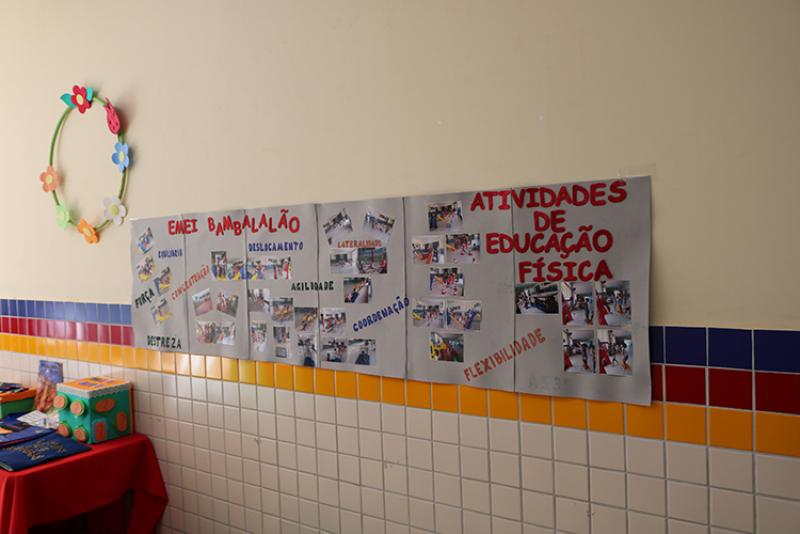 EMEI BAMBALALÃO
ATIVIDADES
DE
EDUCAÇÃO
FÍSICA
EQUILÍBRIO
DESLOCAMENTO
LATERALIDADE
CONCENTRAÇÃO
FORÇA
AGILIDADE
COORDENAÇÃO
DESTREZA
FLEXIBILIDADE